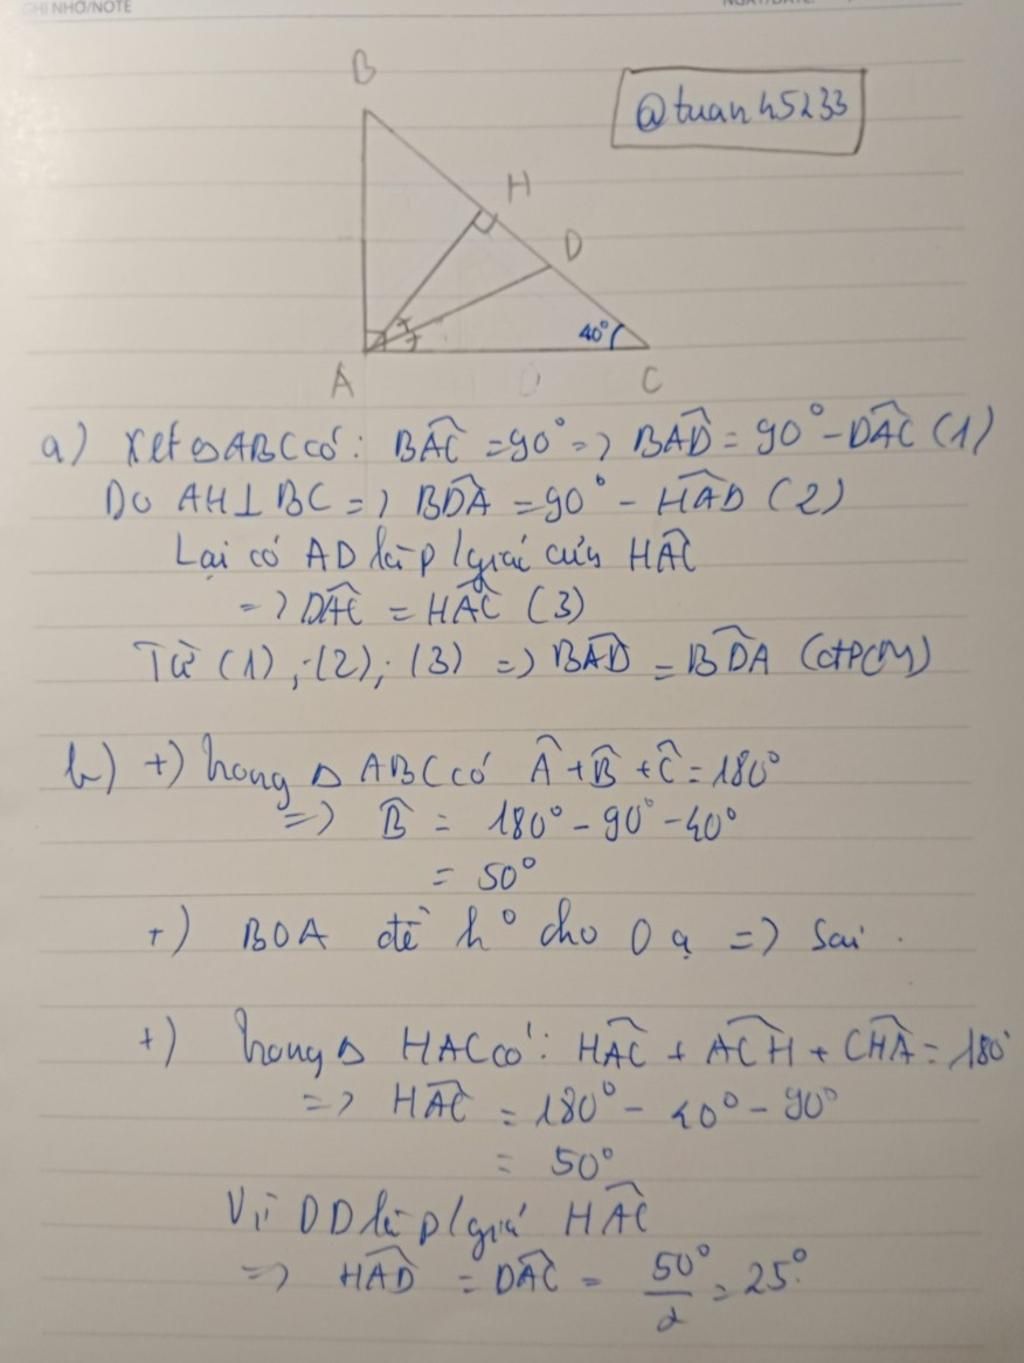 GHI NHỚ/NOTE
@tuanh5233
B
H
D
40°
A
C
a) Xét △ABC có: BAC = 90° => BAD = 90° - DAC (1)
Do AH⊥BC => BDA = 90° - HAD (2)
Lại có AD là p/giác của HAC
=> DAC = HAC (3)
Từ (1); (2); (3) => BAD = BDA (đPCM)
b) +) Trong △ ABC có A + B + C = 180°
=> B = 180° - 90° - 40°
= 50°
+) BOA đề ko cho O ạ => Sai.
+) Trong △ HAC có: HAC + ACH + CHA = 180°
=> HAC = 180° - 40° - 90°
= 50°
Vì DD là p/giác HAC
=> HAD = DAC = 50°/2 = 25°.